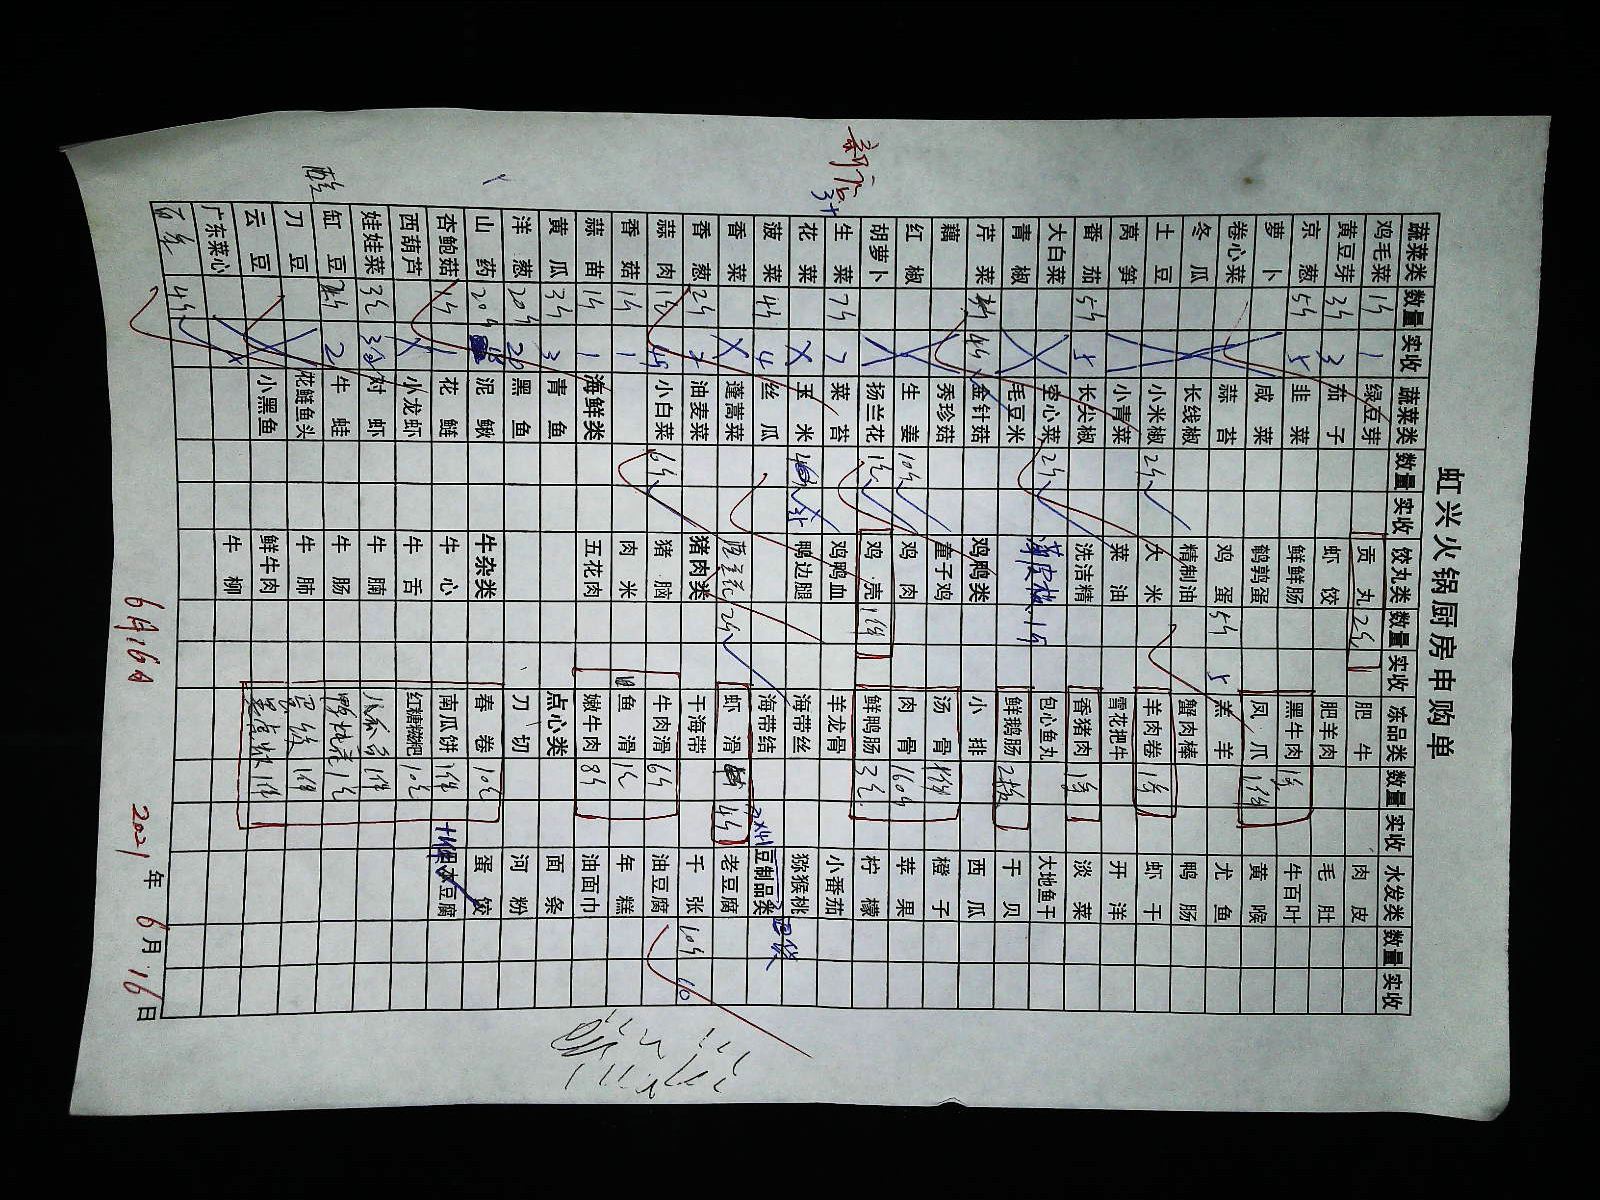 虹兴火锅厨房申购单
蔬菜类 数量 实收 蔬菜类 数量 实收 饺丸类 数量 实收 冻品类 数量 实收 水发类 数量 实收
鸡毛菜 1斤 1 绿豆芽 贡丸 2斤 肥牛 肉皮
黄豆芽 3斤 3 茄子 虾饺 肥羊肉 毛肚
京葱 5斤 5 韭菜 鲜鲜肠 黑牛肉 牛百叶
萝卜 咸菜 鹌鹑蛋 凤爪 1件 黄喉
卷心菜 蒜苔 鸡蛋 5斤 5 羔羊 尤鱼
冬瓜 长线椒 精制油 蟹肉棒 鸭肠
土豆 小米椒 2斤 大米 羊肉卷 虾干
莴笋 小青菜 菜油 雪花把牛 开洋
番茄 5斤 5 长尖椒 洗洁精 香猪肉 淡菜
大白菜 空心菜 2斤 包心鱼丸 大地鱼干
青椒 毛豆米 鲜鹅肠 干贝
芹菜 4斤 金针菇 鸡鸭类 小排 西瓜
藕 秀珍菇 童子鸡 汤骨 橙子
红椒 生姜 10斤 鸡肉 肉骨 苹果
胡萝卜 扬兰花 鸡壳 1件 鲜鸭肠 柠檬
生菜 7斤 7 菜苔 鸡鸭血 羊龙骨 小番茄
花菜 玉米 鸭边腿 海带丝 猕猴桃
菠菜 4斤 4 丝瓜 海带结 豆制品类 退货
香菜 蓬蒿菜 西兰花 2斤 虾滑 4斤 老豆腐
香葱 2斤 2 油麦菜 猪肉类 干海带 千张 10斤 10
蒜肉 小白菜 6斤 猪脑 牛肉滑 6斤 油豆腐
香菇 1斤 1 肉米 鱼滑 年糕
蒜苗 1斤 1 海鲜类 五花肉 嫩牛肉 8斤 油面巾
黄瓜 3斤 3 青鱼 点心类 面条
洋葱 20斤 20 黑鱼 刀切 河粉
山药 20斤 泥鳅 牛杂类 春卷 蛋饺
杏鲍菇 1斤 1 花鲢 牛心 南瓜饼 1件 日本豆腐
西葫芦 小龙虾 牛舌 红糖糍粑
娃娃菜 对虾 牛腩
缸豆 2 牛蛙 牛肠
刀豆 花鲢鱼头 牛肺
云豆 小黑鱼 鲜牛肉
广东菜心 牛柳
4斤
6月16日 2021年6月16日